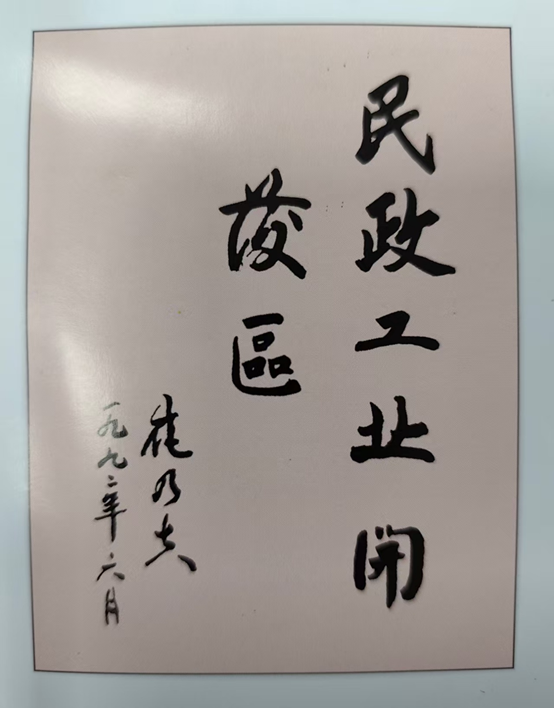 民政工业開
发區
崔乃夫
一九九二年六月